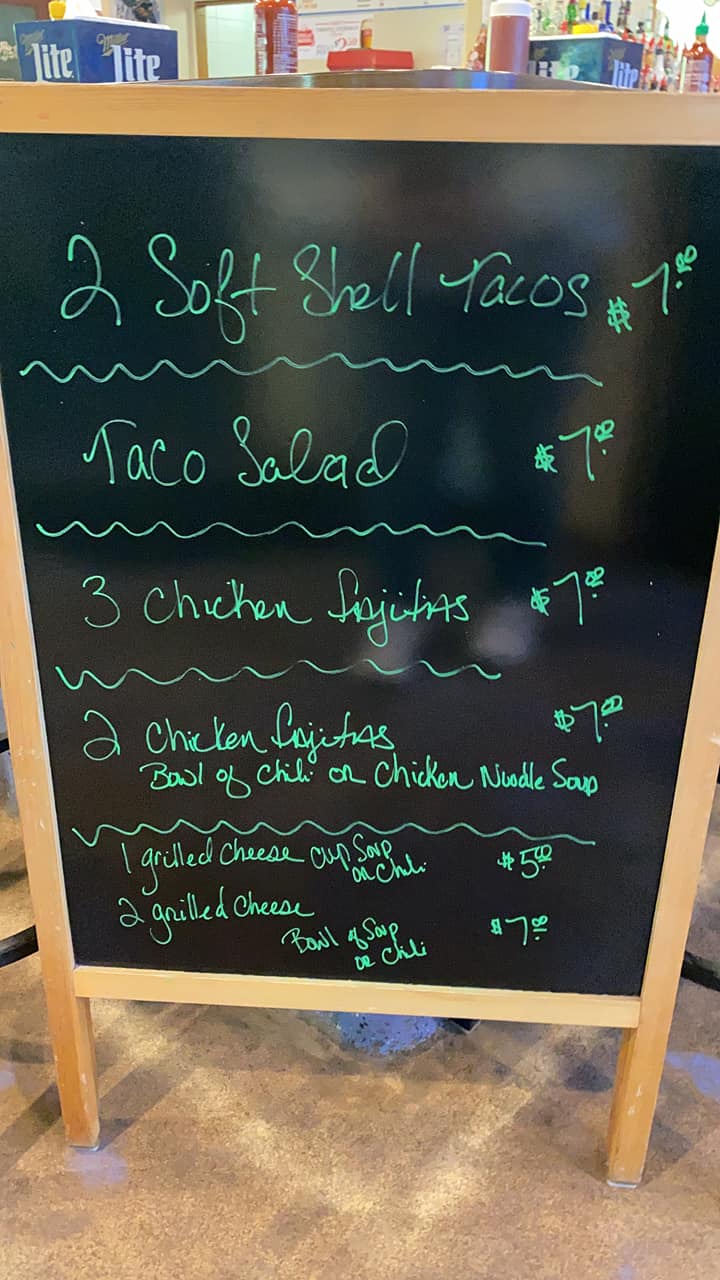 Miller Lite
Miller Lite
Lite
2 Soft Shell Tacos $7.00
Taco Salad $7.00
3 Chicken fajitas $7.00
2 Chicken fajitas $7.00
Bowl of Chili or Chicken Noodle Soup
1 grilled Cheese Cup Soup $5.00
or Chili
2 grilled Cheese
Bowl of Soup $7.00
or Chili